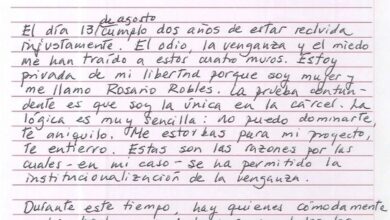 de agosto
El día 13 cumplo dos años de estar recluida
injustamente. El odio, la venganza y el miedo
me han traído a estos cuatro muros. Estoy
privada de mi libertad porque soy mujer y
me llamo Rosario Robles. La prueba contun-
dente es que soy la única en la cárcel. La
lógica es muy sencilla: no puedo dominarte,
te aniquilo. Me estorbas para mi proyecto,
te entierro. Estas son las razones por las
cuales - en mi caso - se ha permitido la
institucionalización de la venganza.
Durante este tiempo, hay quienes cómodamente